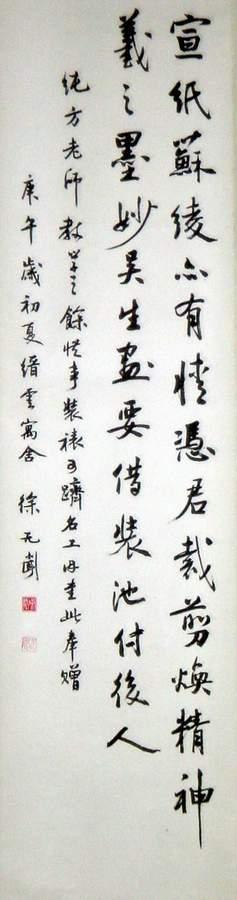 宣紙蘇綾亦有情憑君裁剪煥精神
羲之墨妙吴生画要借裝池付後人
纯方老师教学之餘从事装裱可躋名工因書此奉赠
庚午歲初夏缙雲寓舍 徐无聞